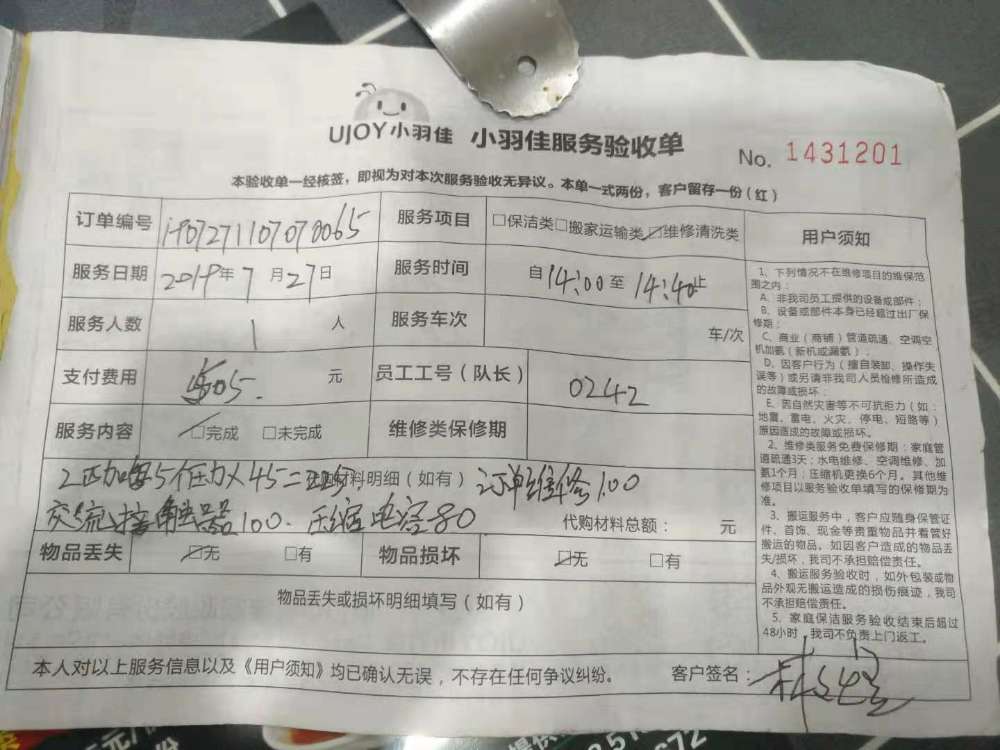 UJOY小羽佳 小羽佳服务验收单
No. 1431201
本验收单一经核签，即视为对本次服务验收无异议。本单一式两份，客户留存一份（红）
订单编号 服务项目 □保洁类□搬家运输类☑维修清洗类
服务日期 2019年7月27日 服务时间 自14:00至14:40止
服务人数 1 人 服务车次 车/次
支付费用 505. 元 员工工号（队长） 0242
服务内容 ☑完成 □未完成 维修类保修期
2匹加每5个压力X45= 材料明细（如有） 订单维修100
交流接触器100. 压缩电容80 代购材料总额： 元
物品丢失 ☑无 □有 物品损坏 ☑无 □有
物品丢失或损坏明细填写（如有）
本人对以上服务信息以及《用户须知》均已确认无误，不存在任何争议纠纷。 客户签名：
用户须知
1、下列情况不在维修项目的维保范
围之内：
A、非我司员工提供的设备或部件；
B、设备或部件本身已经超过出厂保
修期；
C、商业（商铺）管道疏通、空调空
机加氨（新机或漏氨）；
D、因客户行为（擅自装卸、操作失
误等）或另请非我司人员检修所造成
的故障或损坏；
E、因自然灾害等不可抗拒力（如：
地震、雷电、火灾、停电、短路等）
原因造成的故障或损坏。
2、维修类服务免费保修期：家庭管
道疏通3天；水电维修、空调维修、加
氨1个月；压缩机更换6个月。其他维
修项目以服务验收单填写的保修期为
准。
3、搬运服务中，客户应随身保管证
件、首饰、现金等贵重物品并看管好
搬运的物品。如因客户造成的物品丢
失/损坏，我司不承担赔偿责任。
4、搬运服务验收时，如外包装或物
品外观无搬运造成的损伤痕迹，我司
不承担赔偿责任。
5、家庭保洁服务验收结束后超过
48小时，我司不负责上门返工。